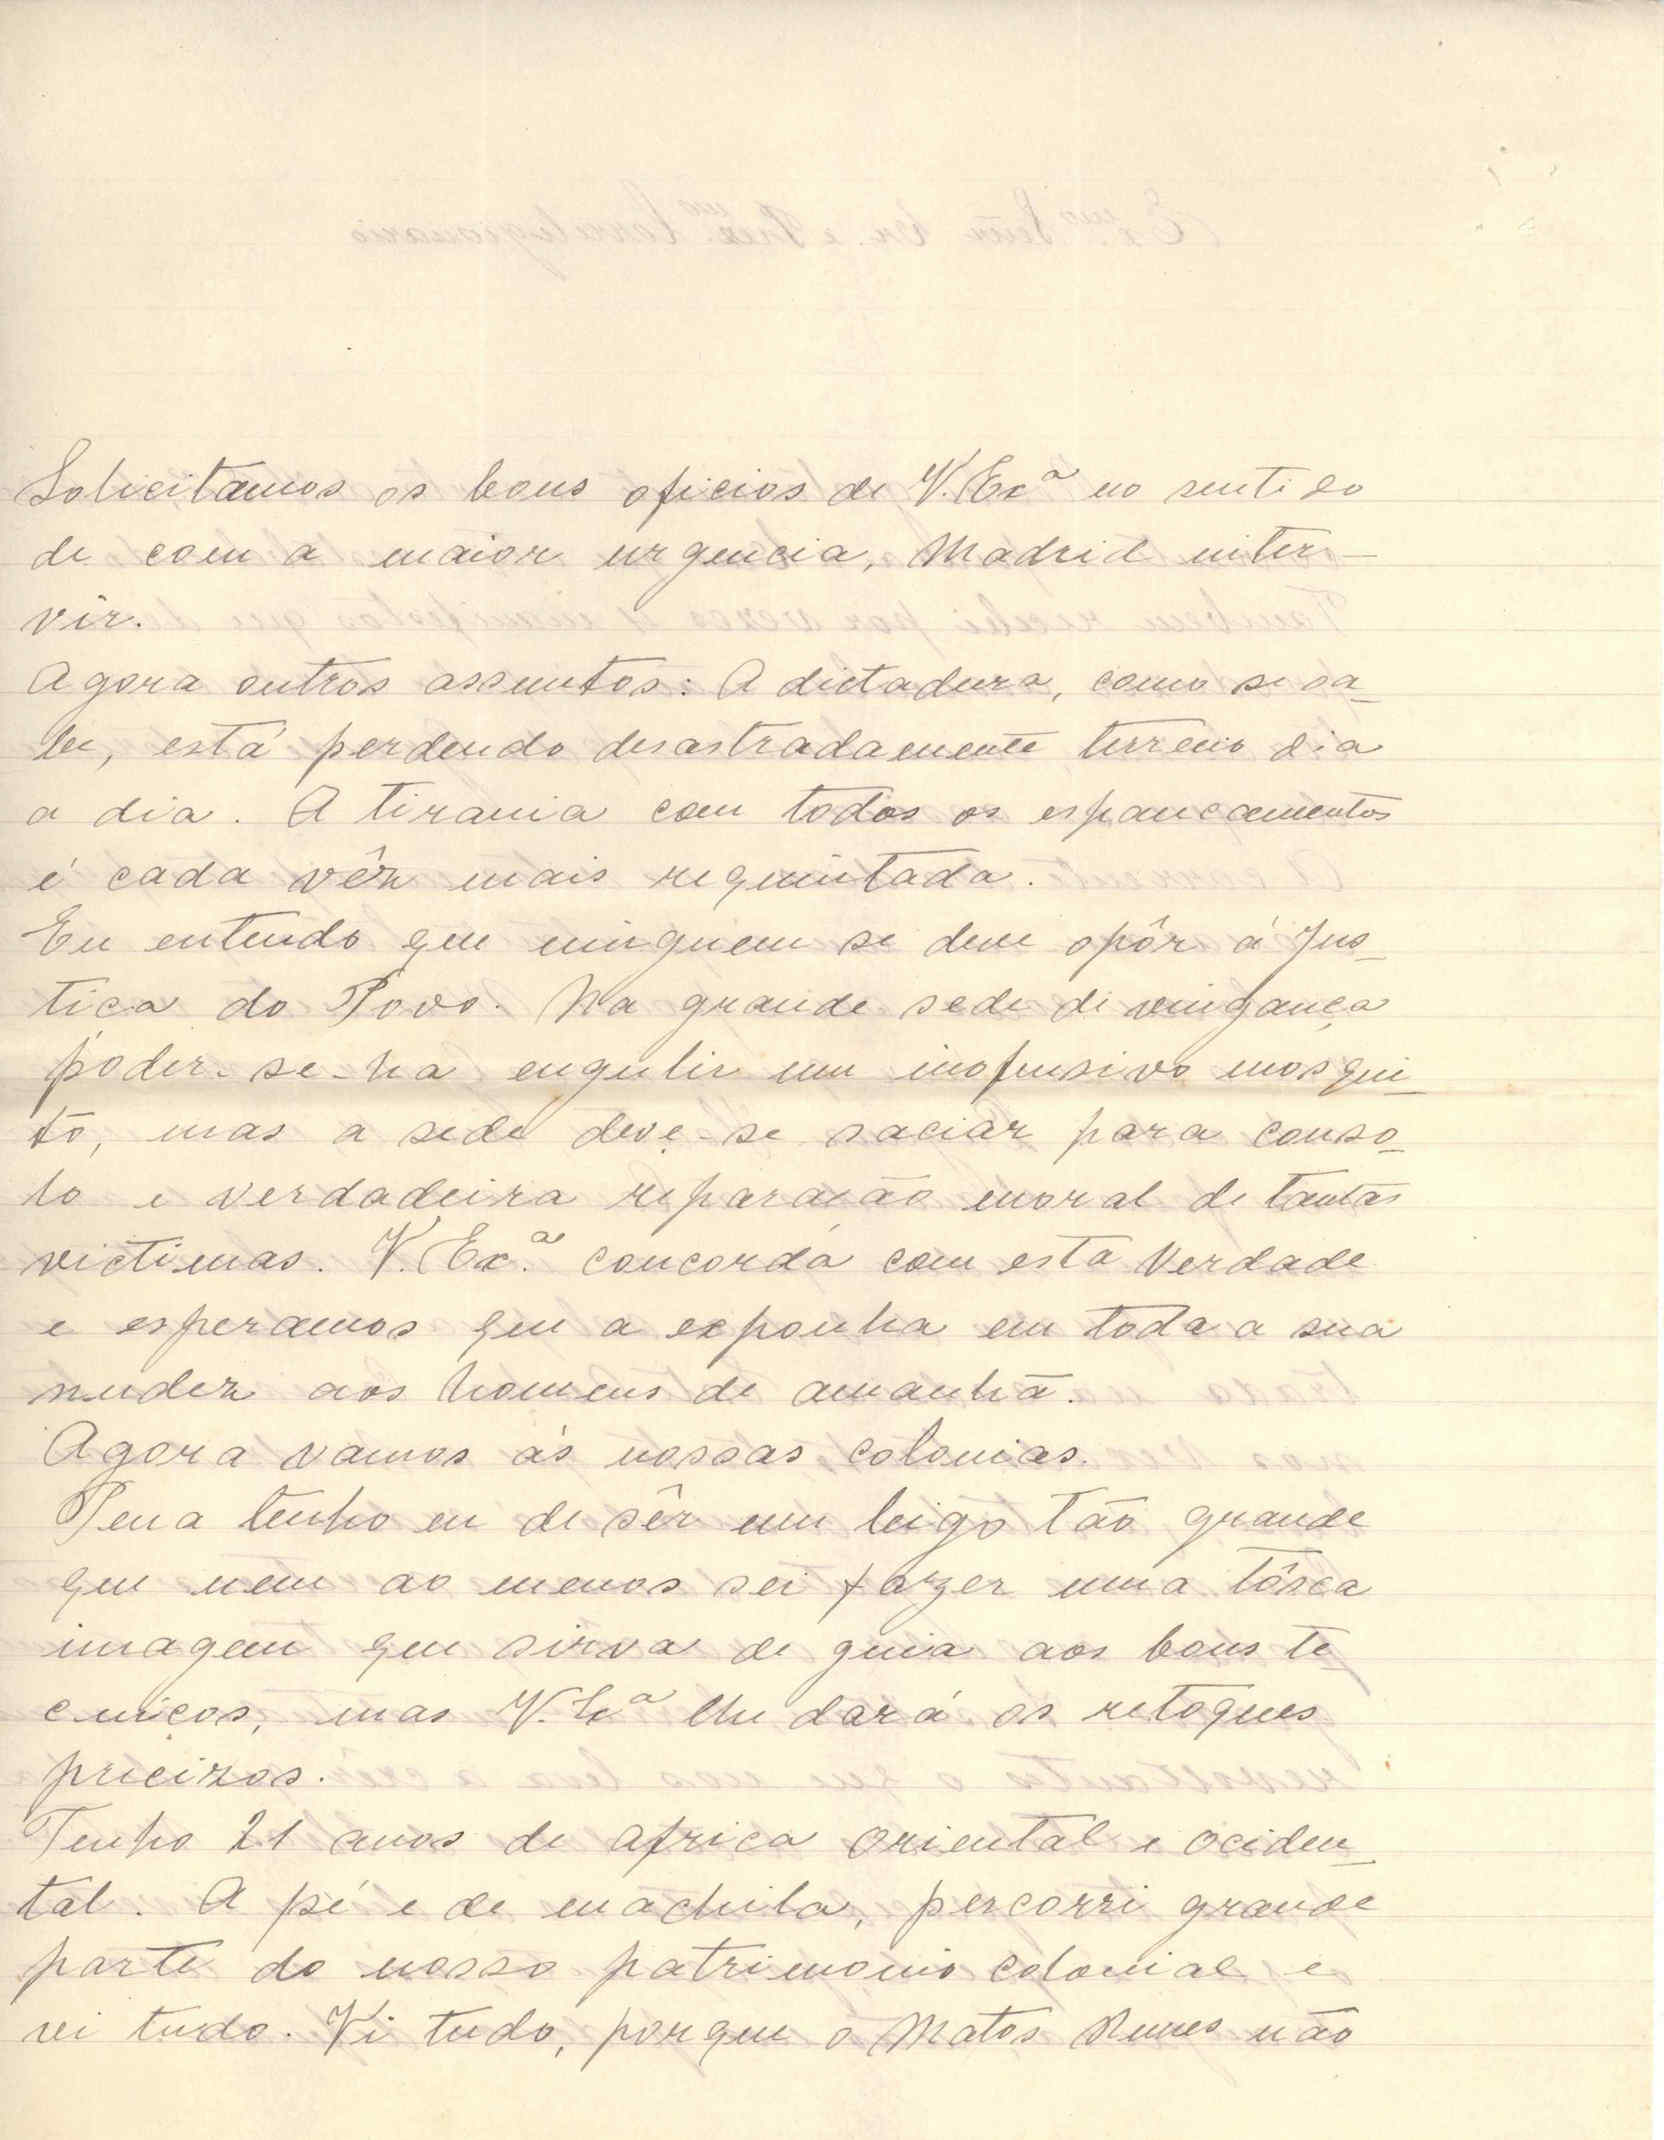 Solicitamos os bons oficios de V. Exª no sentido
de com a maior urgencia, Madrid inter-
vir.
Agora outros assuntos: A dictadura, como se sa-
be, está perdendo desastradamente terreno dia
a dia. A tirania com todos os espancamentos
é cada vêz mais requintada.
Eu entendo que ninguem se deve opôr á Jus-
tiça do Povo. Na grande sede de vingança
poder-se-ha engulir um inofensivo mosqui-
to, mas a sede deve-se saciar para conso-
lo e verdadeira reparação moral de tantas
victimas. V. Exª. concorda com esta verdade
e esperamos que a exponha em toda a sua
nudez aos homens de amanhã.
Agora vamos ás nossas colonias.
Pena tenho eu de sêr um leigo tão grande
que nem ao menos sei fazer uma tôsca
imagem que sirva de guia aos bons te-
cnicos, mas V. Exª lhe dará os retoques
precizos.
Tenho 21 anos de africa oriental e ociden-
tal. A pé e de machila, percorri grande
parte do nosso patrimonio colonial e
vi tudo. Vi tudo, porque o Matos Nunes não